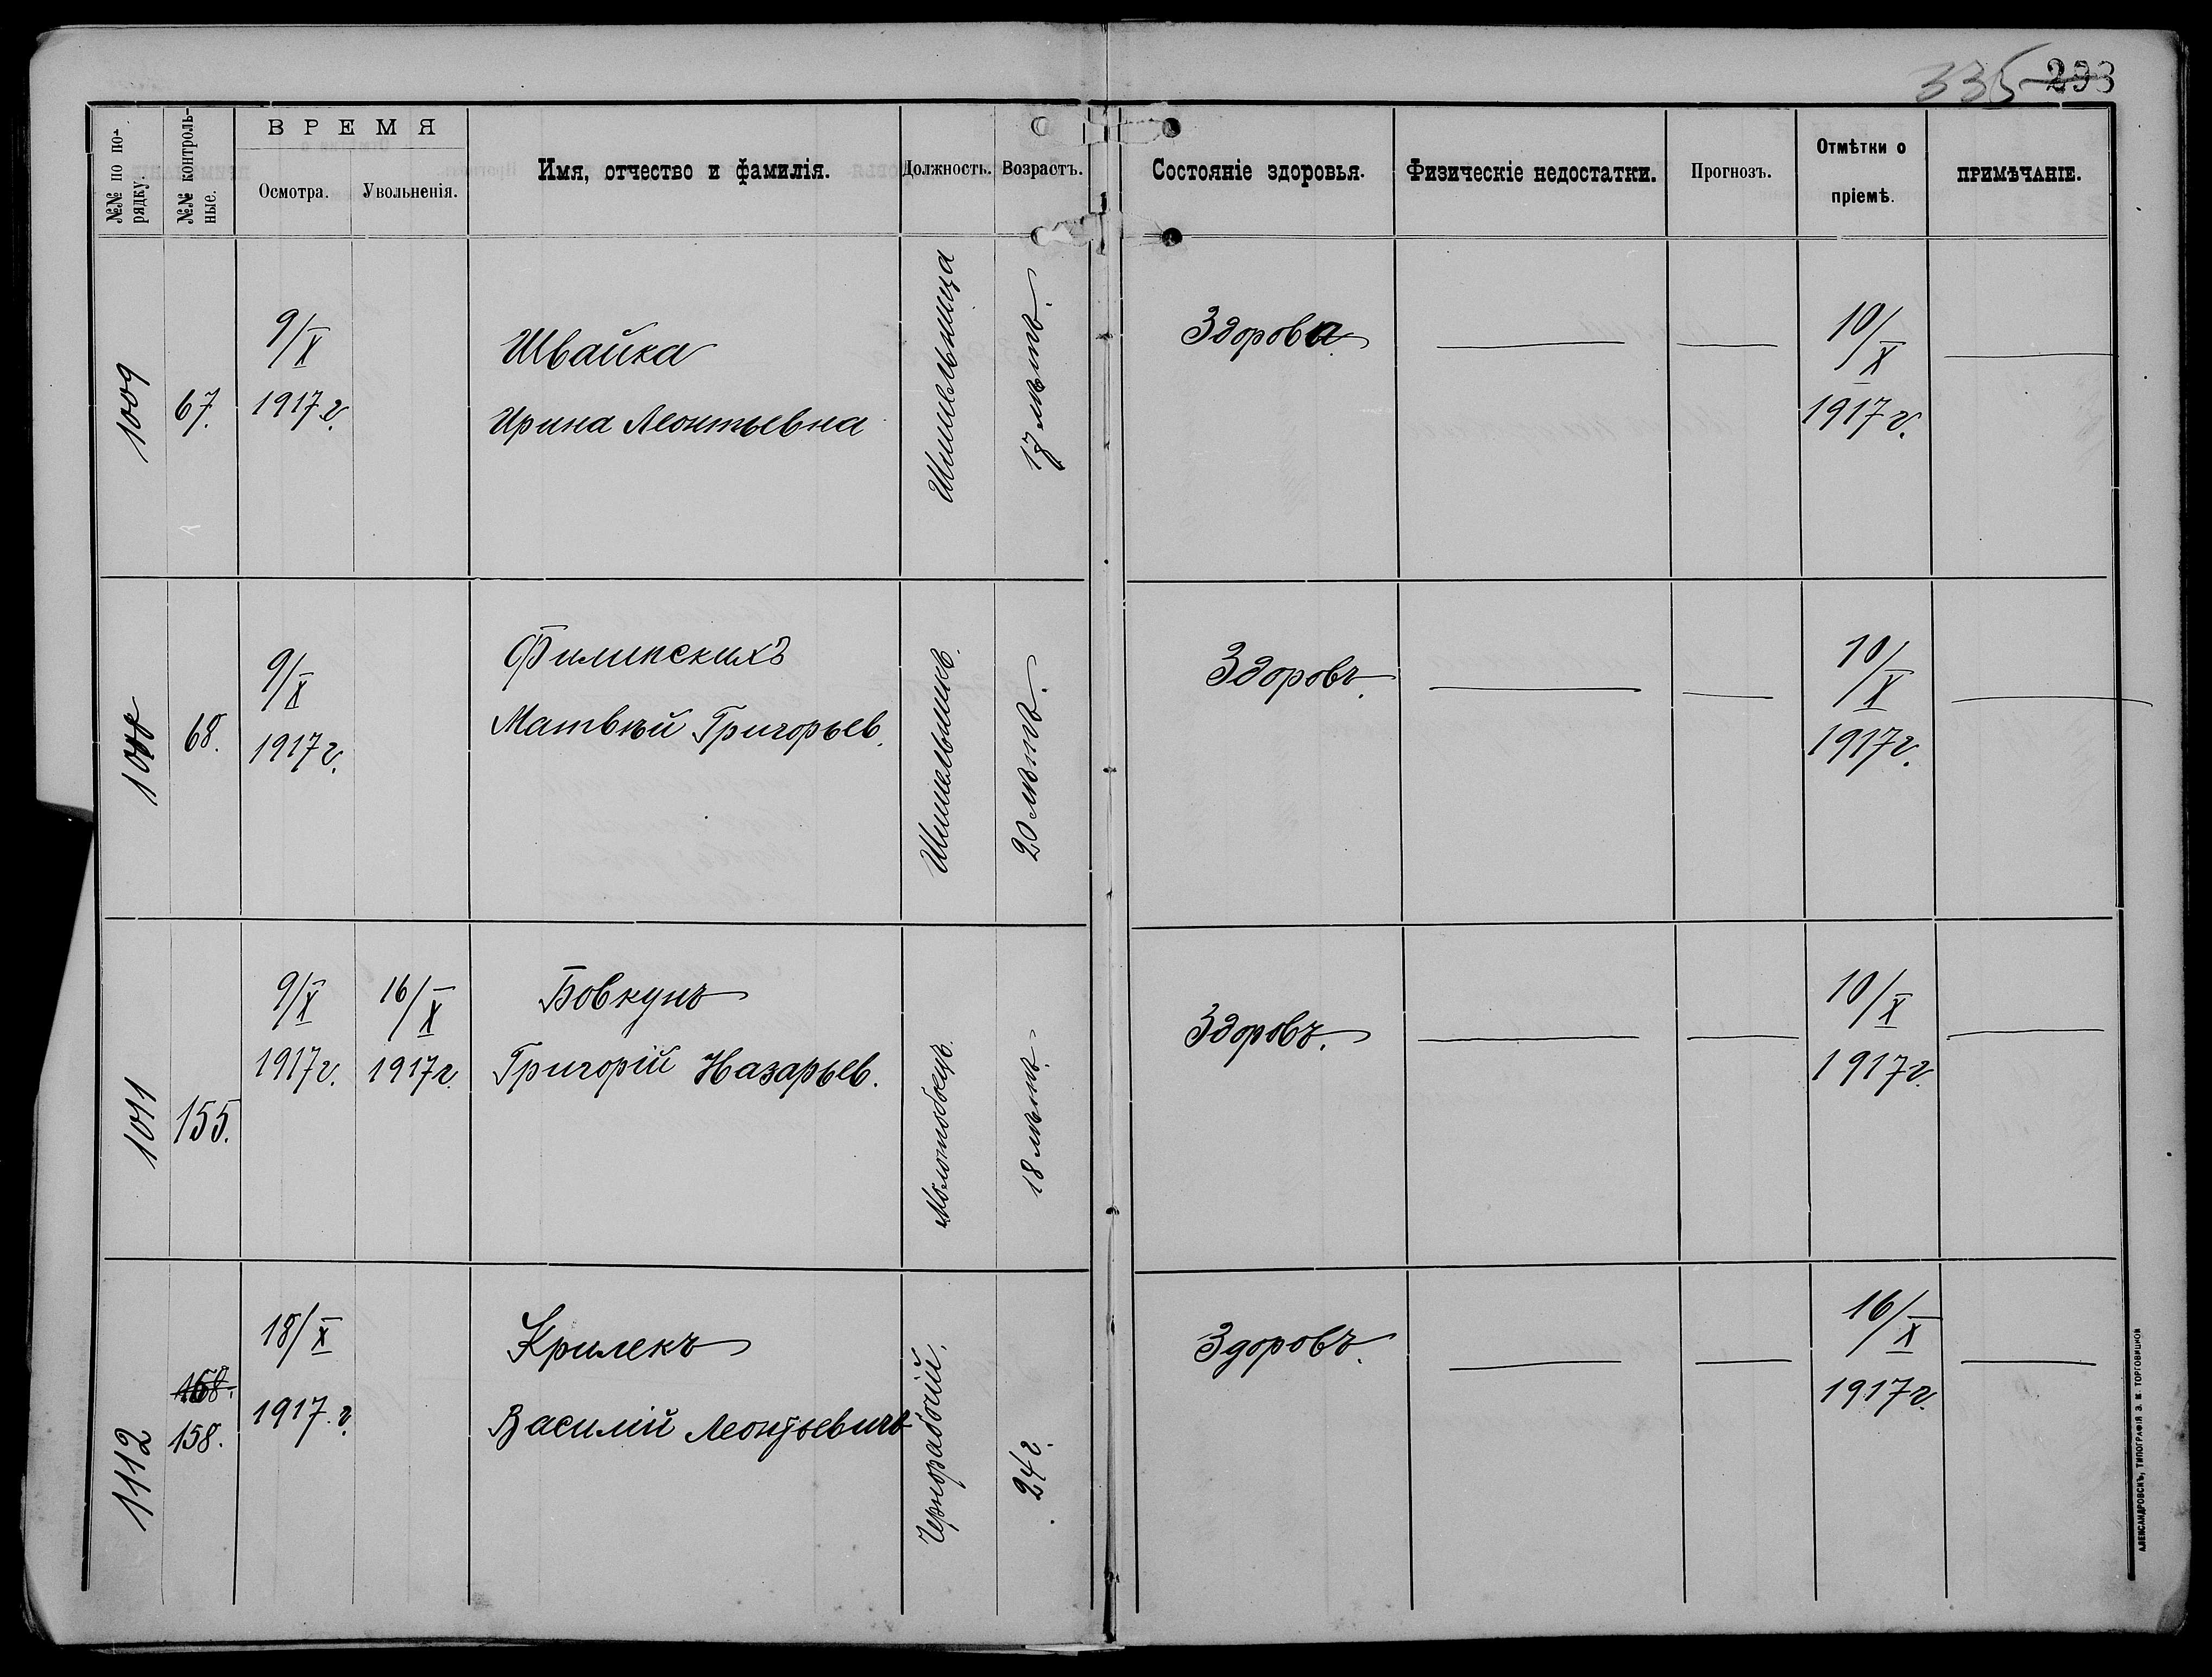 335 293
№№ по по-
рядку.
№№ контроль-
ные.
ВРЕМЯ
Осмотра.
Увольненія.
Имя, отчество и фамилія.
Должность.
Возрастъ.
Состояніе здоровья.
Физическіе недостатки.
Прогнозъ.
Отмѣтки о
пріемѣ.
ПРИМѢЧАНІЕ.
1009
67.
9/X
1917 г.
Швайка
Ирина Леонтьевна
Шишельница
17 лѣтъ.
Здорова
10/X
1917 г.
68.
9/X
1917 г.
Филипскихъ
Матвѣй Григорьев.
Шишельникъ.
20 лѣтъ.
Здоровъ.
10/X
1917 г.
1011
155.
9/X
1917 г.
16/X
1917 г.
Бовкунъ
Григорій Назарьев.
Молотобоецъ.
18 лѣтъ.
Здоровъ.
10/X
1917 г.
1112
168.
158.
18/X
1917. г.
Крилекъ
Василій Леонтьевичъ
Чернорабочій.
24 г.
Здоровъ.
16/X
1917 г.
АЛЕКСАНДРОВСКЪ, ТИПОГРАФІЯ Э. И. ТОРГОВИЦКОЙ